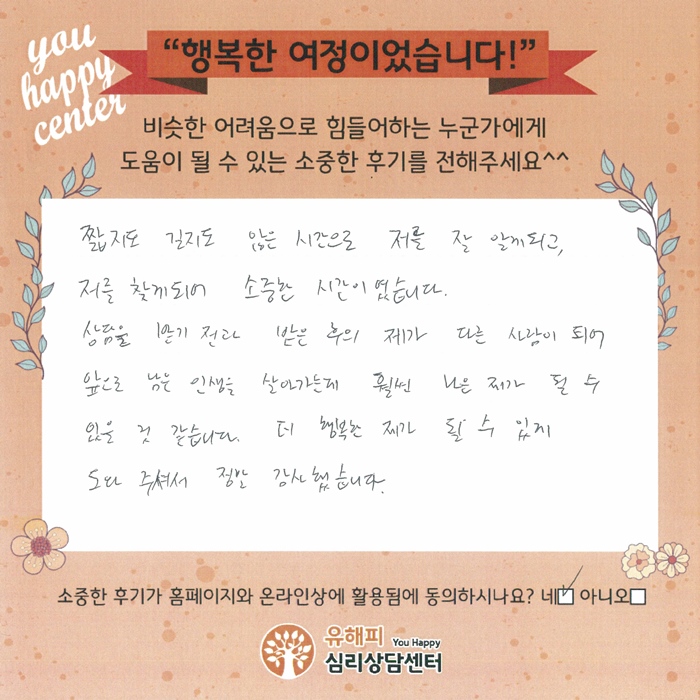 you
happy
center
“행복한 여정이었습니다!”
비슷한 어려움으로 힘들어하는 누군가에게
도움이 될 수 있는 소중한 후기를 전해주세요^^
짧지도 길지도 않은 시간으로 저를 잘 알게되고,
저를 찾게되어 소중한 시간이였습니다.
상담을 받기 전과 받은 후의 제가 다른 사람이 되어
앞으로 남은 인생을 살아가는데 훨씬 나은 제가 될 수
있을 것 같습니다. 더 행복한 제가 될 수 있게
도와 주셔서 정말 감사했습니다.
소중한 후기가 홈페이지와 온라인상에 활용됨에 동의하시나요? 네 아니오
유해피 You Happy
심리상담센터